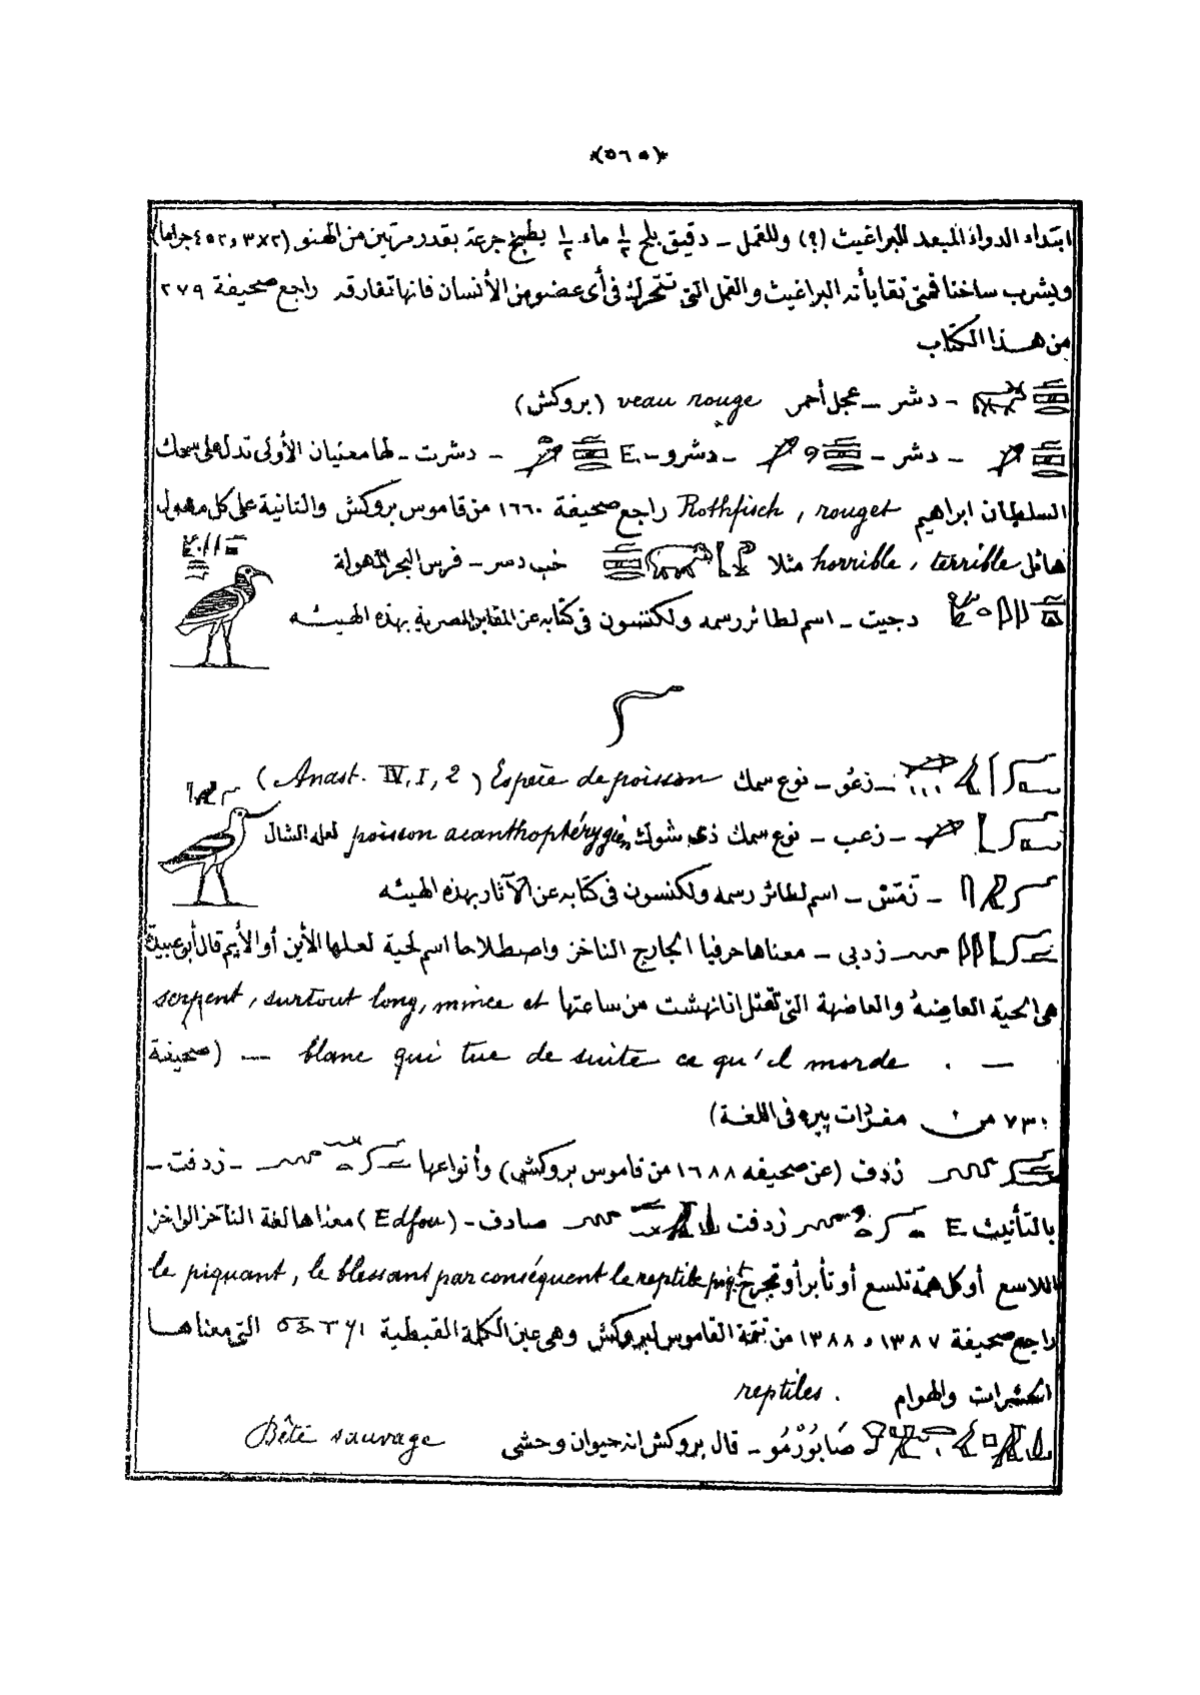 *(٥٦٥)*
ابتداء الدواء المبعد للبراغيث (؟) وللقمل – دقيق بلح ١/٢ ماء ١/٢ يطبخ جرعة بقدر مرتين من الهنو
ويشرب ساخنا فمتى تقايأته البراغيث والقمل التى تتحرك فى أى عضو من الأنسان فانها تفارقه راجع صحيفة ٢٧٩
من هذا الكتاب
– دشر – عجل أحمر veau rouge (بروكش)
– دشر – – دشرو – E. – دشرت – لها معنيان الأولى تدل على سمك
السلطان ابراهيم Rothfisch, rouget راجع صحيفة ١٦٦٠ من قاموس بروكش والثانية على كل مهول
هائل horrible, terrible مثلا خب دسر – فرس البحر المهولة
دجيت – اسم لطائر رسمه ولكنسون فى كتابه عن المقابر المصرية بهذه الهيئه
– زعو – نوع سمك Espèce de poisson (Anast. IV, I, 2)
– زعب – نوع سمك ذى شوك poisson acanthoptérygien لعله الشال
– تمَش – اسم لطائر رسمه ولكنسون فى كتابه عن الآثار بهذه الهيئه
زدبى – معناها حرفيا الجارح الناخز واصطلاحا اسم لحية لعلها الأين أو الأيم قال أبو عبيدة
هى الحية العاضهُ والعاضهة التى تقتل اذا نهشت من ساعتها serpent, surtout long, mince et
blanc qui tue de suite ce qu'il morde . — (صحيفة
٧٣٠ من مفردات پيره فى اللغة)
زدف (عن صحيفه ١٦٨٨ من قاموس بروكش) وأنواعها – زدفت –
بالتأنيث E زدفت صادف – (Edfou) معناها لغة الناخز الواخز
اللاسع أو كل همة تلسع أو تأبر أو تجرح le piquant, le blessant par conséquent le reptile
راجع صحيفة ١٣٨٧ و ١٣٨٨ من تتمة القاموس لبروكش وهى عين الكلمة القبطية التى معناها
الحشرات والهوام reptiles.
صَابُورْمُو – قال بروكش انه حيوان وحشى Bête sauvage